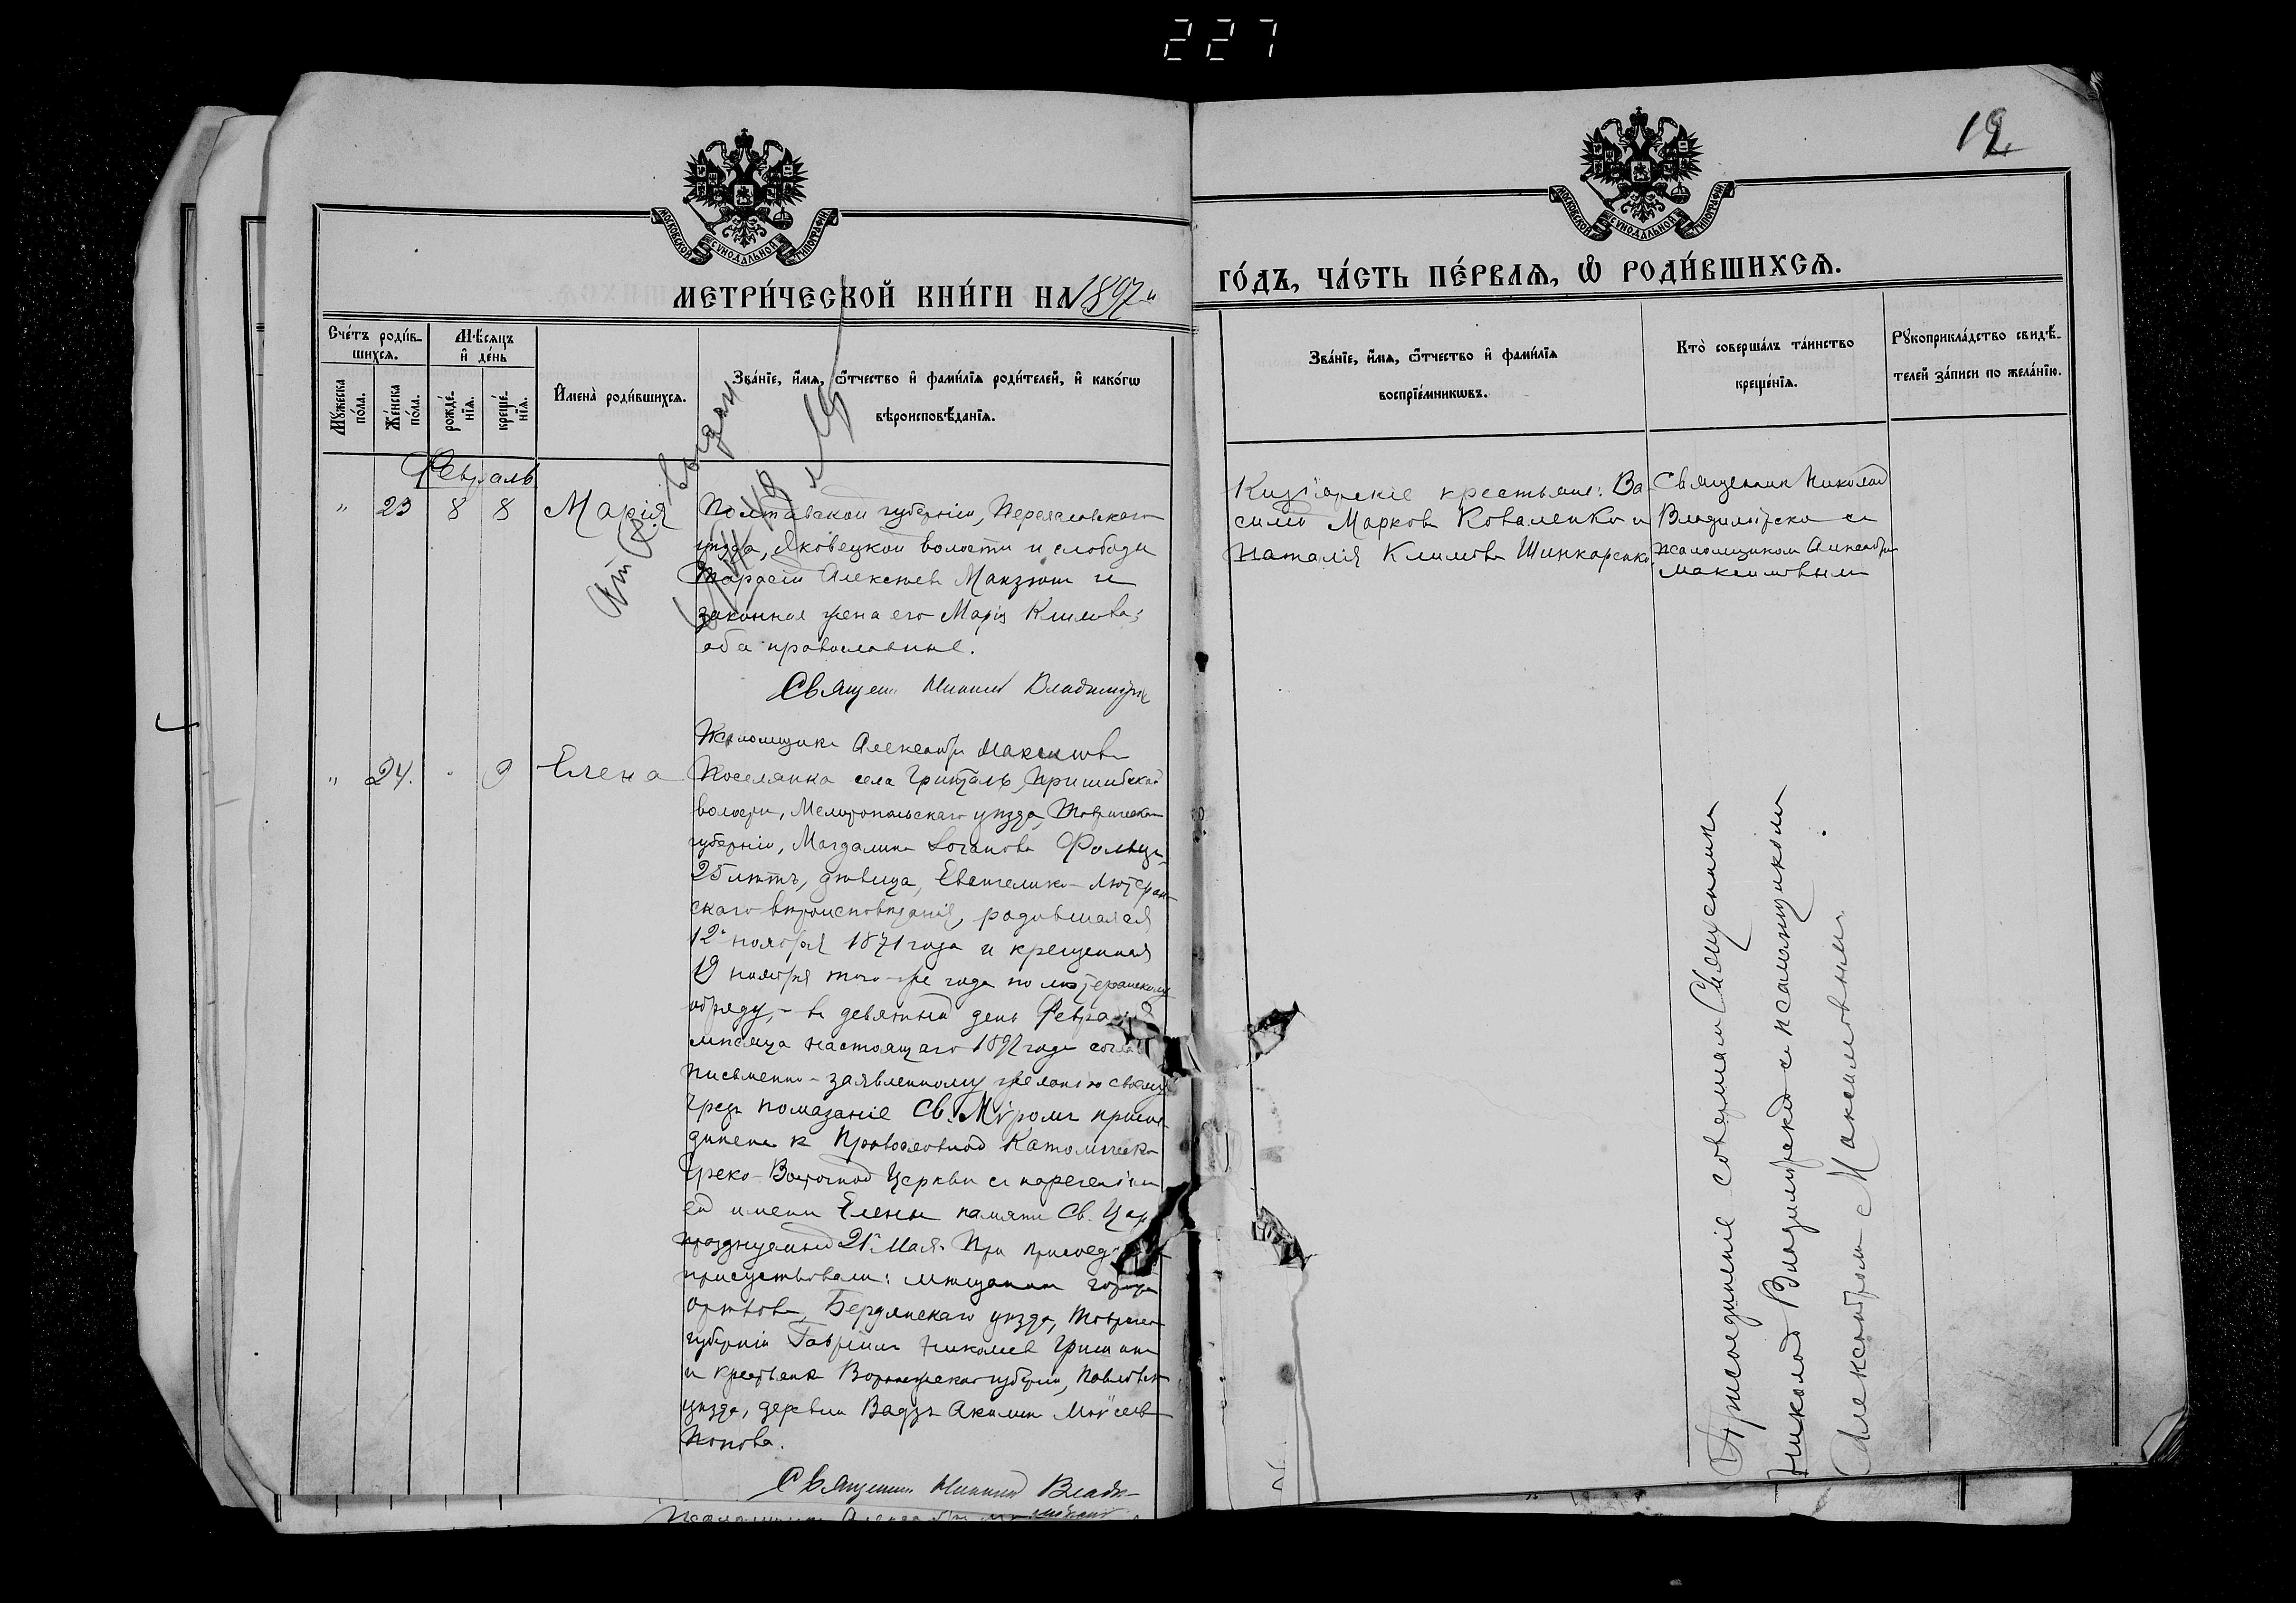 227
12
МОСКОВСКОЙ СѴНОДАЛЬНОЙ ТИПОГРАФІИ
МОСКОВСКОЙ СѴНОДАЛЬНОЙ ТИПОГРАФІИ
МЕТРИ́ЧЕСКОЙ КНИ́ГИ НА 1897 й
ГО́ДЪ, ЧА́СТЬ ПЕ́РВАѦ, Ѡ҆ РОДИ́ВШИХСѦ.
Сче́тъ роди́в-
шихсѧ.
Мѣ́сяцъ
и҆ де́нь
Мꙋ́жеска
по́ла.
Же́нска
по́ла.
рожде́-
нїѧ.
креще́-
нїѧ.
И҆мена̀ роди́вшихсѧ.
Зва́нїе, и҆́мѧ, ѻ҆́тчество и҆ фами́лїѧ роди́телей, и҆ како́гѡ
вѣроисповѣ́данїѧ.
Зва́нїе, и҆́мѧ, ѻ҆́тчество и҆ фами́лїѧ
воспрїе́мникѡвъ.
Кто̀ соверша́лъ та́инство
креще́нїѧ.
Рꙋкоприкла́дство свидѣ́-
телей за́писи по жела́нїю.
Февраль
" 23 8 8 Марія
Полтавской губерніи, Переяславскаго
уѣзда, Яковецкой волости и слободы
Тарасій Алексѣевъ Манзюкъ и
законная жена его Марія Климова;
оба православные.
Священ. Николай Владимірск
Кизіярскіе крестьяне: Ва-
силій Марковъ Коваленко и
Наталія Климова Шинкаренко
Священник Николай
Владимірскій съ
псаломщиком Александром
Максимовым
Псаломщикъ Александръ Максимовъ
" 24. " 9 Елена
Поселянка села Гринталь, Пришибской
волости, Мелитопольскаго уѣзда, Таврической
губерніи, Магдалина Фольцъ,
25 лѣтъ, дѣвица, Евангелико-Лютеран-
скаго вѣроисповѣданія, родившаяся
12 ноября 1871 года и крещенная
19 ноября того-же года по лютеранскому
обряду, - въ девятый день Февраля
мѣсяца настоящаго 1897 года согла
письменно-заявленному желанію своему
чрезъ помазаніе Св. Мѵромъ присое-
динена къ Православной Католическо
Греко-Восточной Церкви съ нареченіемъ
ей имени Елены памяти Св. Цар
празднуемый 21 Мая. При присоед
присутствовали: мѣщанинъ города
Орѣхова, Бердянскаго уѣзда, Тавричес
губерніи Гавріилъ Николаев
и крестьянка Воронежской губерніи, Павловск
уѣзда, деревни Акилина Моисеева
Попова.
Священник Николай Влади-
мірскій
Присоединеніе совершалъ Священникъ
Николай Владимірскій съ псаломщикомъ
Александромъ Максимовымъ.